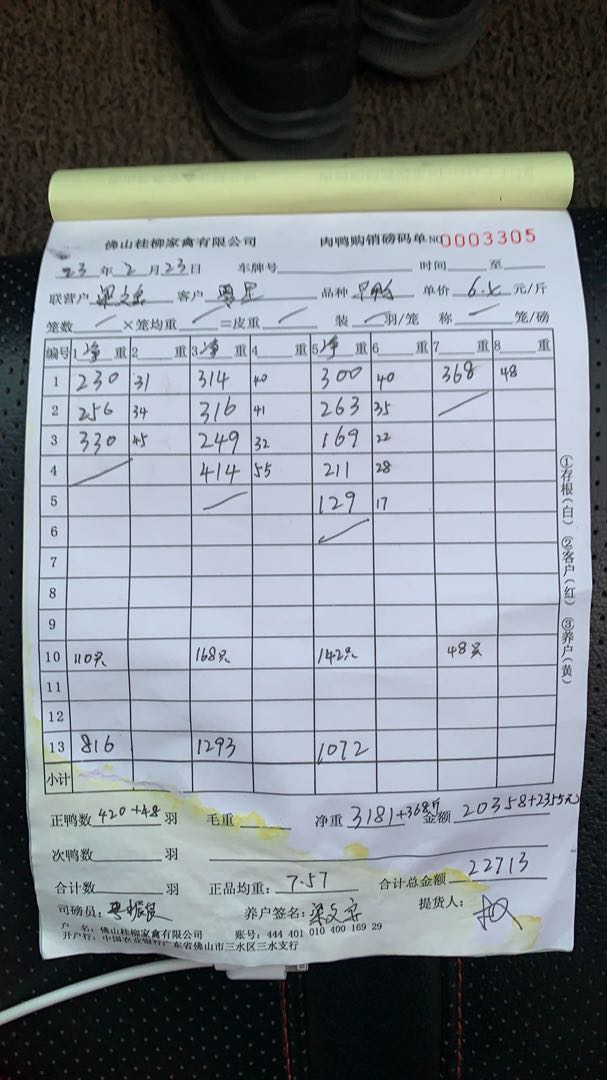 佛山桂柳家禽有限公司 肉鸭购销磅码单 NO 0003305
23 年 2 月 23 日 车牌号 时间 至
联营户 梁 客户 品种 单价 6. 元/斤
笼数 × 笼均重 = 皮重 装 羽/笼 称 笼/磅
编号 1 净 重 2 重 3 净 重 4 重 5 净 重 6 重 7 重 8 重
1 230 31 314 40 300 40 368 48
2 256 34 316 41 263 35
3 330 45 249 32 169 22
4 414 55 211 28
5 129 17
6
7
8
9
10 110只 168只 142只 48只
11
12
13 816 1293 1072
小计
正鸭数 420+48 羽 毛重 净重 3181+368斤 金额 20358+2355元
次鸭数 羽
合计数 羽 正品均重: 7.57 合计总金额 22713
司磅员: 养户签名: 梁 提货人:
户 名: 佛山桂柳家禽有限公司 账号: 444 401 010 400 169 29
开户行: 中国农业银行广东省佛山市三水区三水支行
①存根(白) ②客户(红) ③养户(黄)